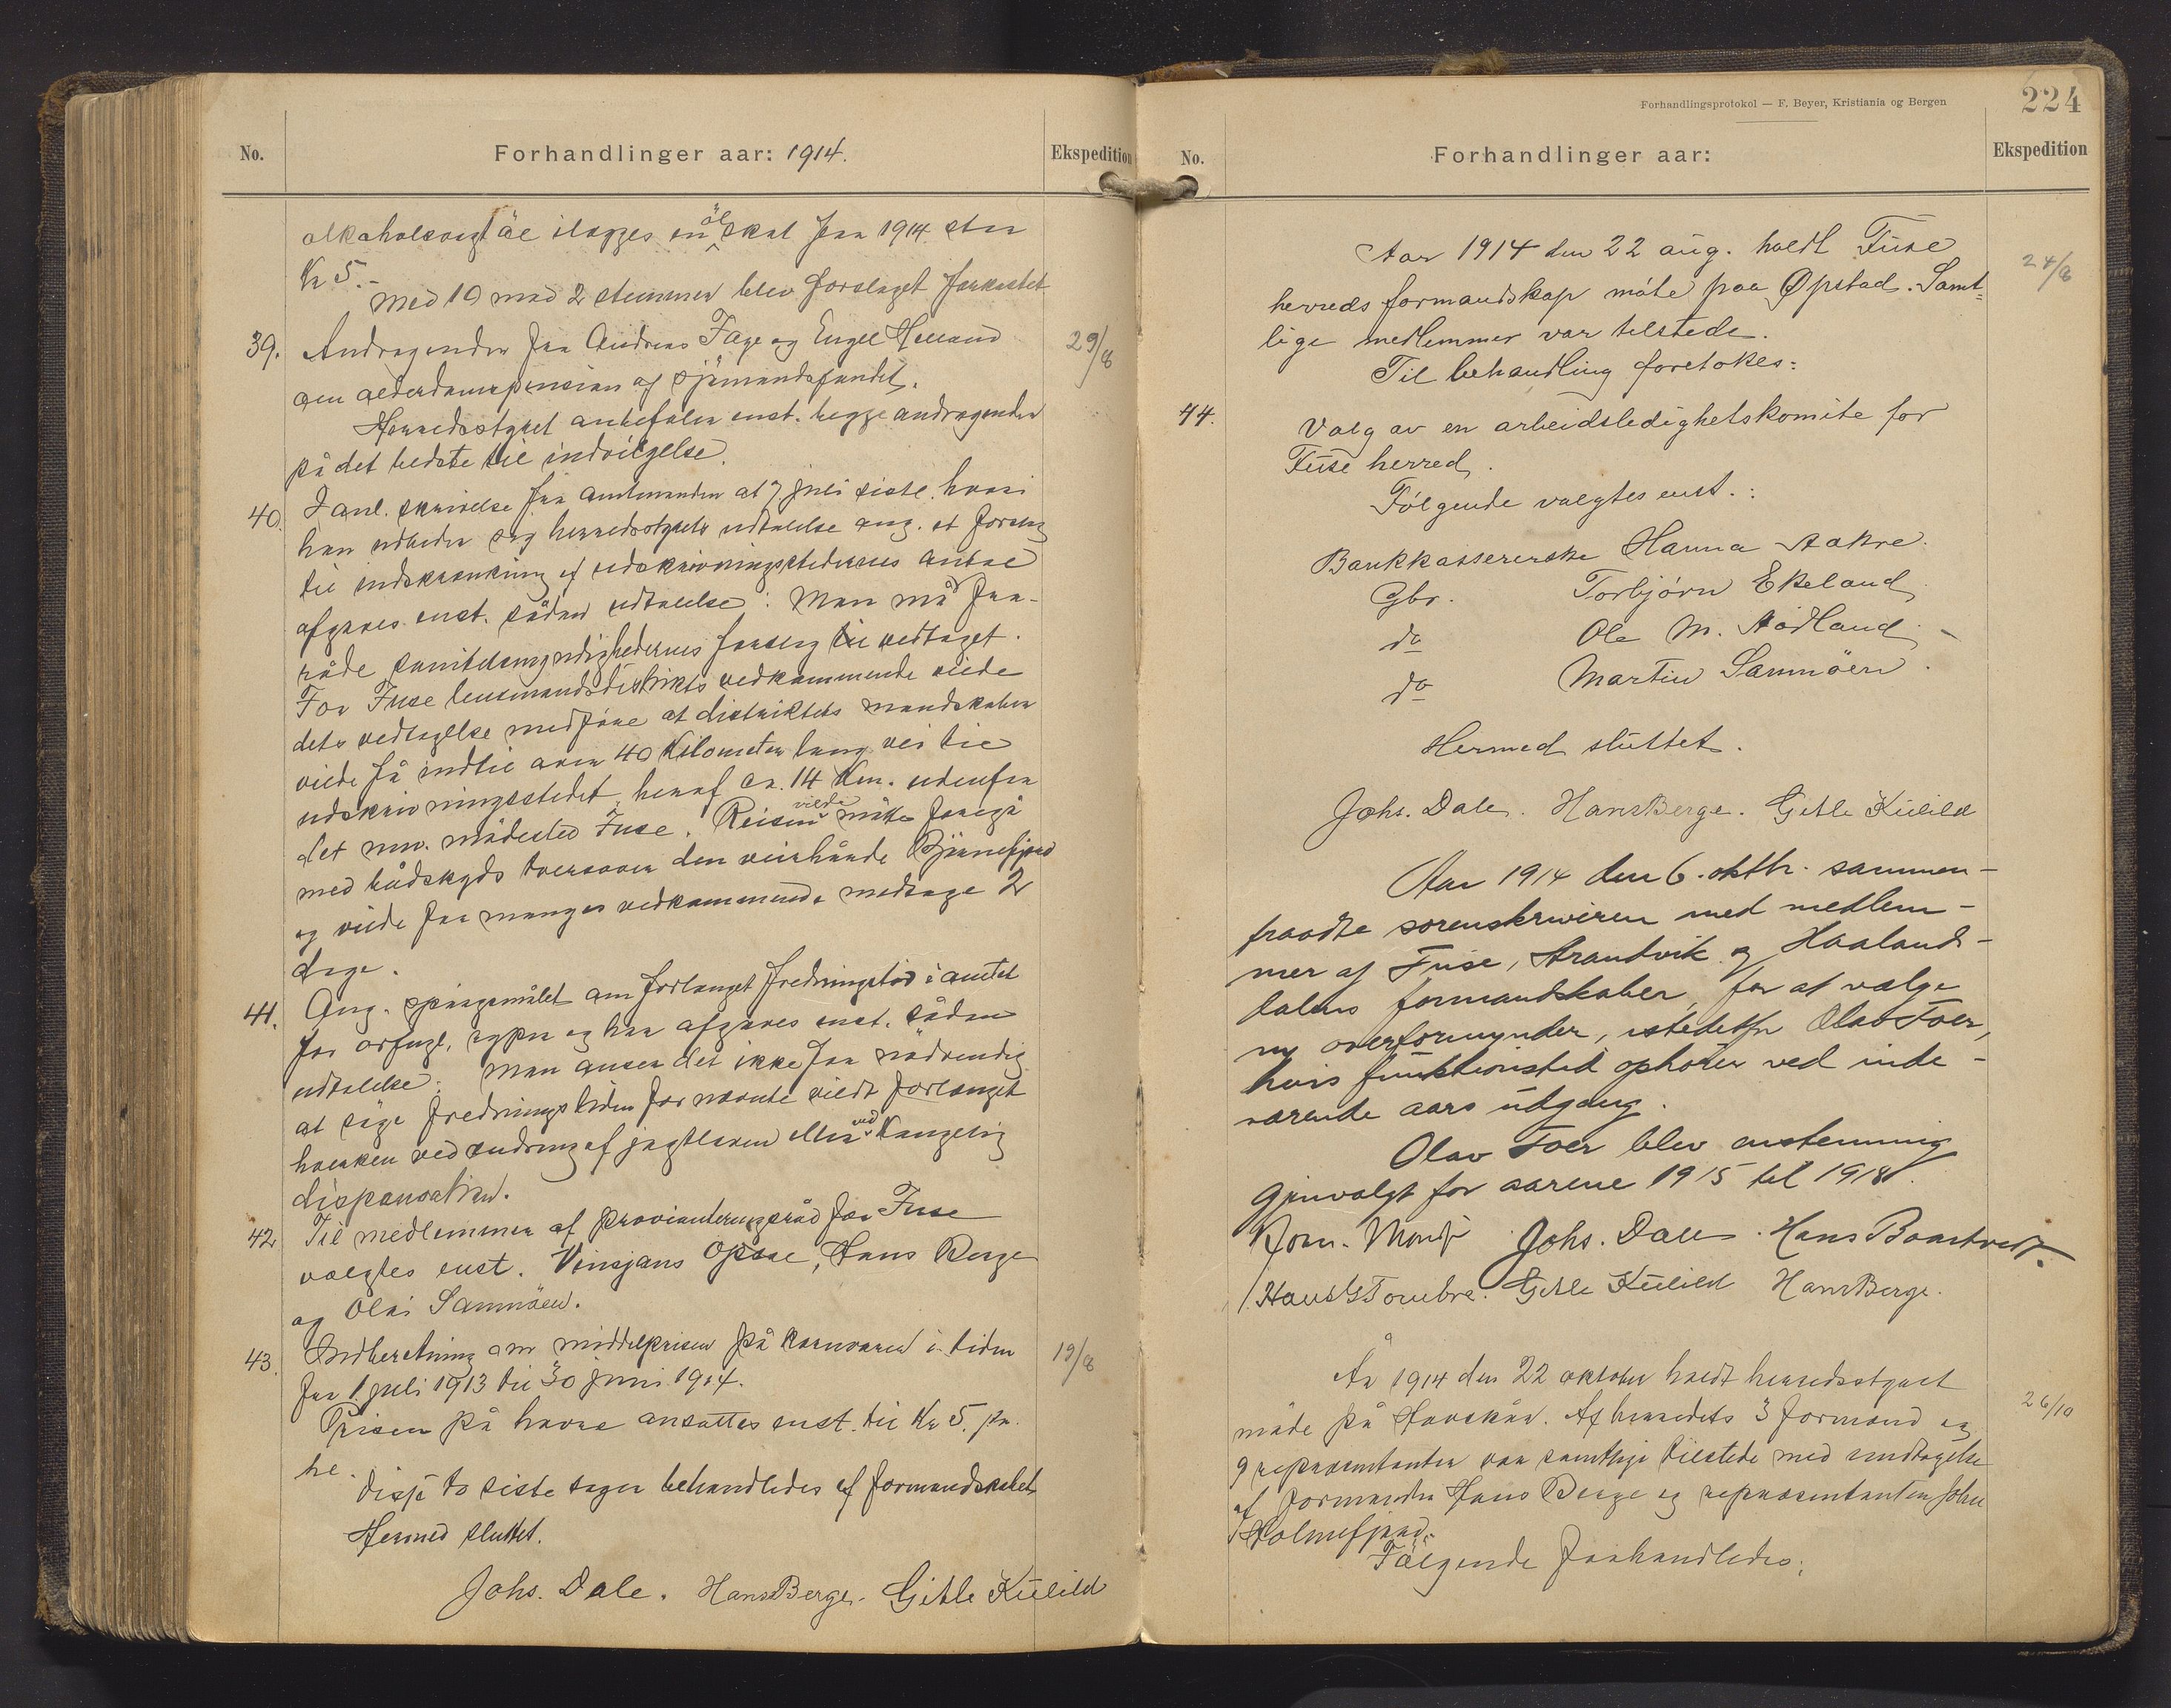 No.
Forhandlinger aar: 1914.
Ekspedition
alkoholsvagt öl ilegges en ölskat for 1914 stor
Kr 5.-
Med 10 mod 2 stemmer blev forslaget forkastet
39. Andragender fra Andreas Tage og Engel Helland
29/8
om alderdomspension af sjömandsfondet.
Herredsstyret anbefaler enst. begge andragender
på det bedste til indvilgelse.
40. I anl. skrivelse fra amtmanden at 7 juli sistl. hvori
han udbeder sig herredsstyrets udtalelse ang. et forslag
til indskrænkning af udskrivningsstedernes antal
afgaves enst. sådan udtalelse: Man må fra-
råde sanitetsmyndighedernes forslag til vedtaget.
For Fuse lensmandsdistrikts vedkommende vilde
dets vedtagelse medföre at distriktets mandskaber
vilde få indtil over 40 Kilometer lang vei til
udskrivningsstedet heraf ca. 14 Km. udenfor
det nuv. mödested Fuse. Reisen vilde måtte foregå
med bådskyds tversover den veirhårde Björnefjord
og vilde for manges vedkommende medtage 2
dage.
41. Ang. spörgsmålet om forlænget fredningstid i amtet
for orfugl, rype og hare afgaves enst. sådan
udtalelse: Man anser det ikke for nödvendig
at söge fredningstiden for nævnte vildt forlænget
hverken ved endring af jagtloven eller ved kongelig
dispensation.
42 Til medlemmer af provianteringsråd for Fuse
valgtes enst. Vinsjans Opsal, Hans Berge
og Olai Samnöen.
43. Indberetning om middelprisen på kornvarer i tiden
19/8
fra 1 juli 1913 til 30 juni 1914.
Prisen på havre ansattes enst. til Kr 5. pr.
hl.
Disse to siste sager behandledes af formandskabet
Hermed sluttet.
Johs. Dale. Hans Berge. Gitle Kulild
Forhandlingsprotokol — F. Beyer, Kristiania og Bergen
224
No.
Forhandlinger aar:
Ekspedition
Aar 1914 den 22 aug. holdt Fuse
24/8
herreds formandskap møte paa Øpstad. Samt-
lige medlemmer var tilstede.
Til behandling foretokes:
44. Valg av en arbeidsledighetskomite for
Fuse herred.
Følgende valgtes enst.:
Bankkassererske Hanna Aakre.
Gbr. Torbjørn Ekeland
do Ole M. Nödland
do Martin Samnöen.
Hermed sluttet.
Johs. Dale. Hans Berge. Gitle Kulild
Aar 1914 den 6. oktbr. sammen-
traadte sorenskriveren med medlem-
mer af Fuse, Strandvik og Haaland-
dalens formandskaber, for at vælge
ny overformynder, istedetfor Olav Foer,
hvis funktionstid ophører ved inde-
værende aars udgang.
Olav Foer blev enstemmig
gjenvalgt for aarene 1915 til 1918.
Johs. Dale. Hans Boastvedt.
Gitle Kulild Hans Berge.
År 1914 den 22 oktober holdt herredsstyret
26/10
möde på Havskår. Af herredets 3 formænd og
9 repræsentanter var samtlige tilstede med undtagelse
af formanden Hans Berge og repræsentanten John
Holmefjord.
Fölgende forhandledes: